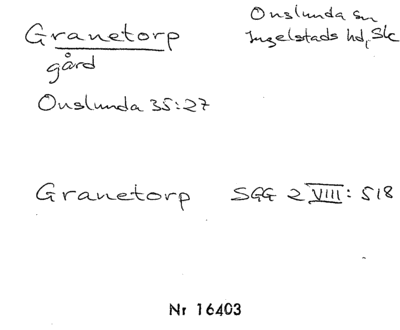 Granetorp
gård
Onslunda sn
Ingelstads hd, Sk
Onslunda 35:27
Granetorp SGG 2 VIII: 518
Nr 16403